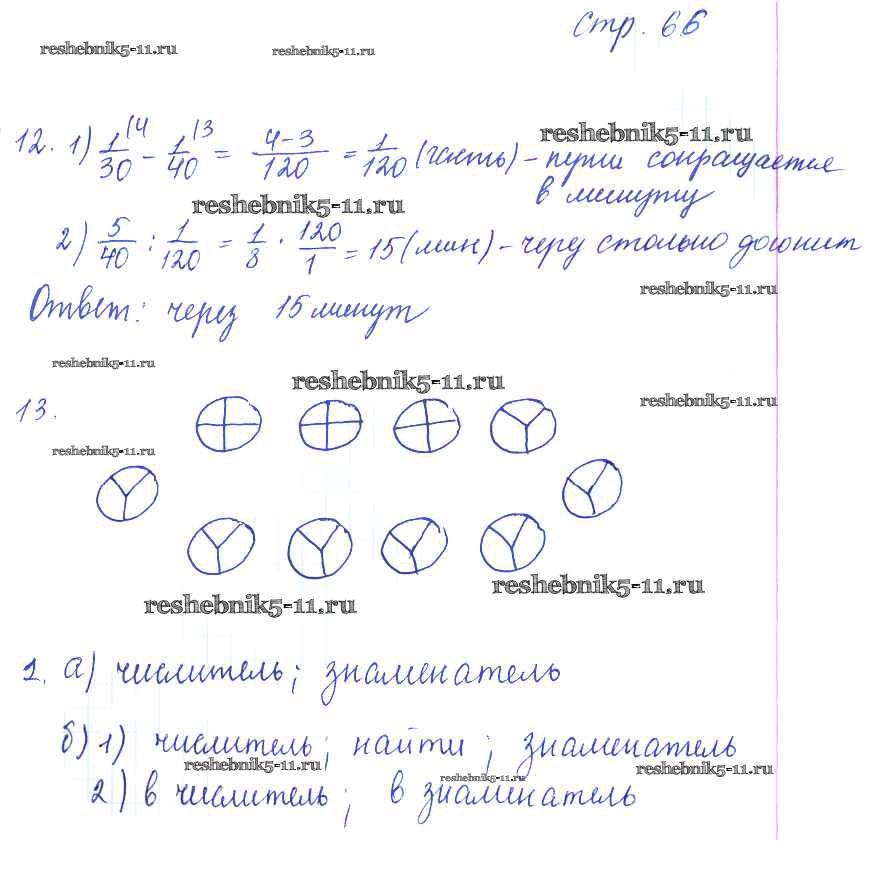 стр. 66
reshebnik5-11.ru reshebnik5-11.ru
12. 1) 1/30 (4 - 1/40 (3 = 4-3/120 = 1/120 (часть) - пути сокращается
reshebnik5-11.ru
в минуту
reshebnik5-11.ru
2) 5/40 : 1/120 = 1/8 · 120/1 = 15 (мин) - через столько догонит
reshebnik5-11.ru
Ответ: через 15 минут
reshebnik5-11.ru
reshebnik5-11.ru
reshebnik5-11.ru
13.
reshebnik5-11.ru
reshebnik5-11.ru
reshebnik5-11.ru
1. а) числитель; знаменатель
б) 1) числитель; найти; знаменатель
reshebnik5-11.ru reshebnik5-11.ru reshebnik5-11.ru
2) в числитель; в знаменатель